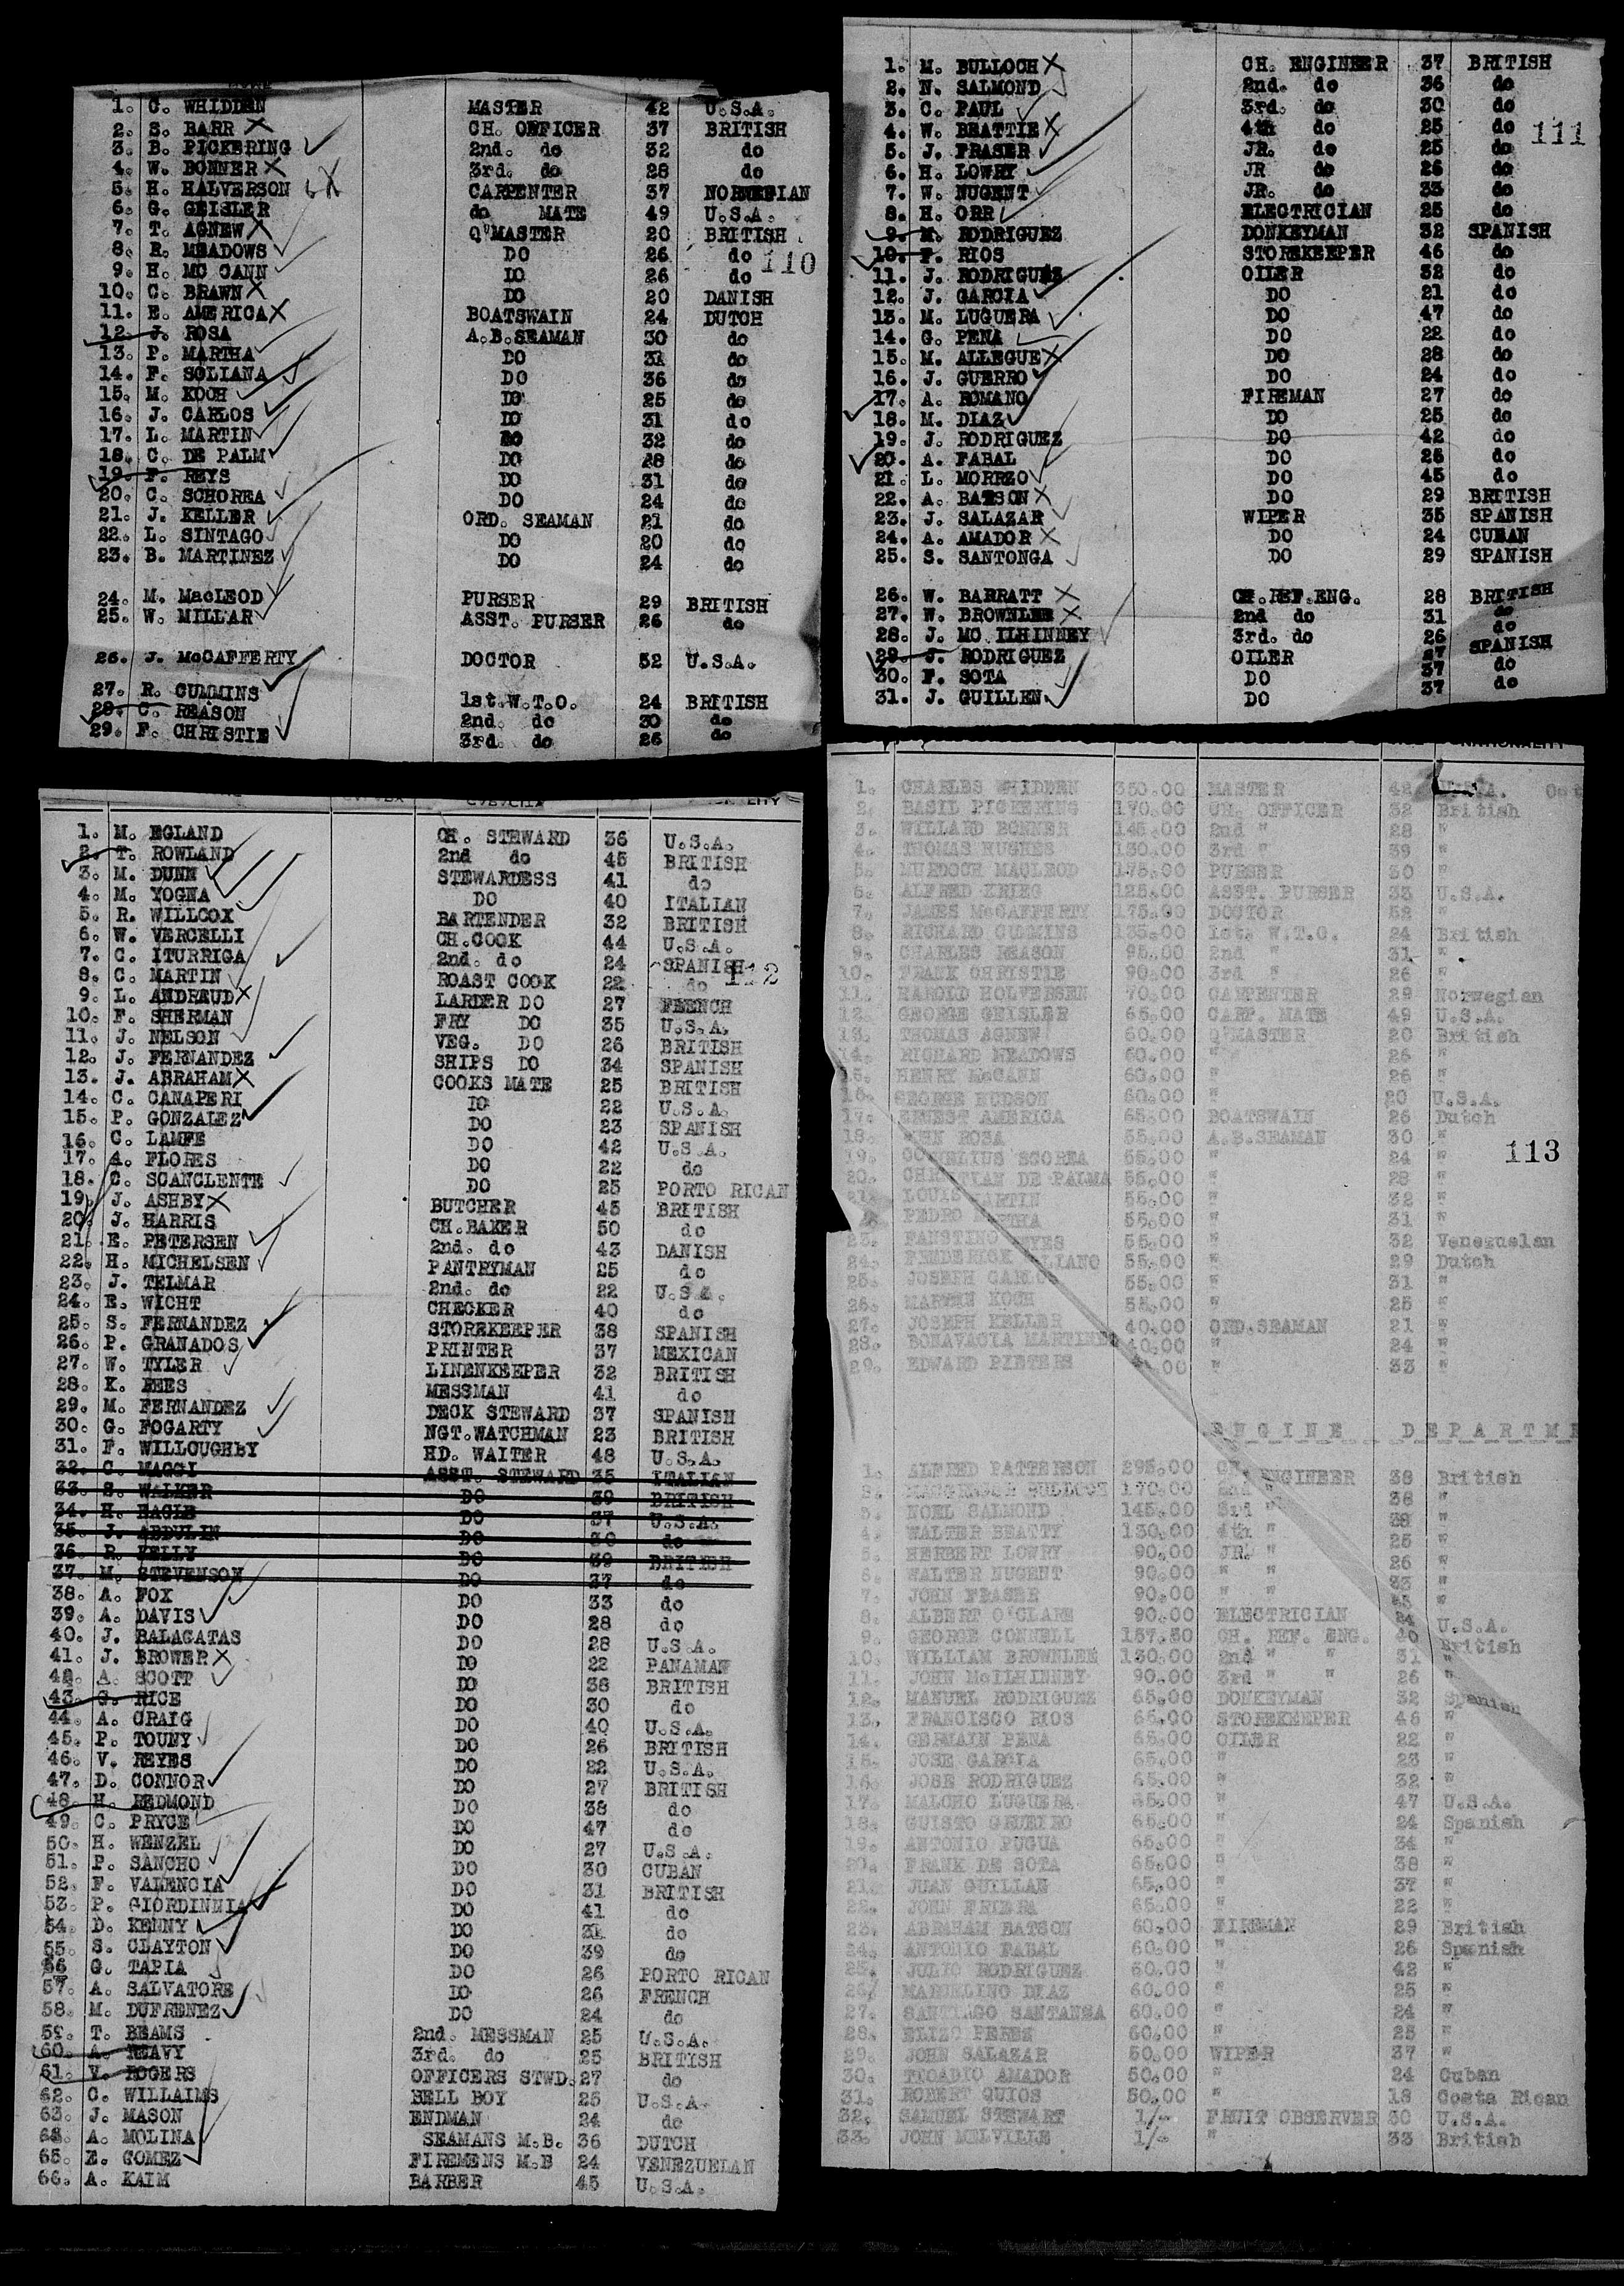 1. C. WHIDDEN MASTER 42 U.S.A.
2. S. BARR X CH. OFFICER 37 BRITISH
3. B. PICKERING 2nd. do 32 do
4. W. BONNER X 3rd. do 28 do
5. H. HALVERSON X CARPENTER 37 NORWEGIAN
6. G. GEISLER do MATE 49 U.S.A.
7. T. AGNEW X Q'MASTER 20 BRITISH
8. R. MEADOWS DO 26 do
110
9. H. MC CANN DO 26 do
10. C. BRAWN X DO 20 DANISH
11. E. AMERICA X BOATSWAIN 24 DUTCH
12. J. ROSA A.B.SEAMAN 30 do
13. P. MARTHA DO 31 do
14. F. SOLIANA DO 36 do
15. M. KOCH DO 25 do
16. J. CARLOS DO 31 do
17. L. MARTIN DO 32 do
18. C. DE PALM DO 28 do
19. F. REYS DO 31 do
20. C. SCHOREA DO 24 do
21. J. KELLER ORD. SEAMAN 21 do
22. L. SINTAGO DO 20 do
23. B. MARTINEZ DO 24 do
24. M. MacLEOD PURSER 29 BRITISH
25. W. MILLAR ASST. PURSER 26 do
26. J. McCAFFERTY DOCTOR 52 U.S.A.
27. R. CUMMINS 1st.W.T.O. 24 BRITISH
28. C. REASON 2nd. do 30 do
29. F. CHRISTIE 3rd. do 26 do
1. M. BULLOCH X CH. ENGINEER 37 BRITISH
2. N. SALMOND 2nd. do 36 do
3. C. PAUL 3rd. do 30 do
4. W. BEATTIE X 4th do 25 do
111
5. J. FRASER JR. do 25 do
6. H. LOWRY JR do 26 do
7. W. NUGENT JR. do 33 do
8. H. ORR ELECTRICIAN 25 do
9. M. RODRIGUEZ DONKEYMAN 32 SPANISH
10. F. RIOS STOREKEEPER 46 do
11. J. RODRIGUEZ OILER 32 do
12. J. GARCIA DO 21 do
13. M. LUGUERA DO 47 do
14. G. PENA DO 22 do
15. M. ALLEGUE X DO 28 do
16. J. GUERRO DO 24 do
17. A. ROMANO FIREMAN 27 do
18. M. DIAZ DO 25 do
19. J. RODRIGUEZ DO 42 do
20. A. FABAL DO 25 do
21. L. MORRZO DO 45 do
22. A. BATSON X DO 29 BRITISH
23. J. SALAZAR WIPER 35 SPANISH
24. A. AMADOR X DO 24 CUBAN
25. S. SANTONGA DO 29 SPANISH
26. W. BARRATT X CH.REF.ENG. 28 BRITISH
27. W. BROWNLEE X 2nd do 31 do
28. J. MC ILHINNEY 3rd. do 26 do
29. J. RODRIGUEZ OILER 37 SPANISH
30. F. SOTA DO 37 do
31. J. GUILLEN DO 37 do
1. M. EGLAND CH. STEWARD 36 U.S.A.
2. T. ROWLAND 2nd do 45 BRITISH
3. M. DUNN STEWARDESS 41 do
4. M. YOGNA DO 40 ITALIAN
5. R. WILLCOX BARTENDER 32 BRITISH
6. W. VERCELLI CH.COOK 44 U.S.A.
7. C. ITURRIGA 2nd. do 24 SPANISH
112
8. C. MARTIN ROAST COOK 22 do
9. L. ANDRAUD X LARDER DO 27 FRENCH
10. F. SHERMAN FRY DO 35 U.S.A.
11. J. NELSON VEG. DO 26 BRITISH
12. J. FERNANDEZ SHIPS DO 34 SPANISH
13. J. ABRAHAM X COOKS MATE 25 BRITISH
14. C. CANAPERI DO 22 U.S.A.
15. P. GONZALEZ DO 23 SPANISH
16. C. LAMFE DO 42 U.S.A.
17. A. FLORES DO 22 do
18. C. SCANCLENTE DO 25 PORTO RICAN
19. J. ASHBY X BUTCHER 45 BRITISH
20. J. HARRIS CH.BAKER 50 do
21. E. PETERSEN 2nd. do 43 DANISH
22. H. MICHELSEN PANTRYMAN 25 do
23. J. TELMAR 2nd. do 22 U.S.A.
24. E. WICHT CHECKER 40 do
25. S. FERNANDEZ STOREKEEPER 38 SPANISH
26. P. GRANADOS PRINTER 37 MEXICAN
27. W. TYLER LINENKEEPER 32 BRITISH
28. K. REES MESSMAN 41 do
29. M. FERNANDEZ DECK STEWARD 37 SPANISH
30. G. FOGARTY NGT.WATCHMAN 23 BRITISH
31. F. WILLOUGHBY HD. WAITER 48 U.S.A.
32. C. MAGGI ASST. STEWARD 35 ITALIAN
33. S. WALKER DO 39 BRITISH
34. H. EAGLE DO 37 U.S.A.
35. J. ABDULIN DO 30 do
36. R. KELLY DO 39 BRITISH
37. M. STEVENSON DO 37 do
38. A. FOX DO 33 do
39. A. DAVIS DO 28 do
40. J. BALAGATAS DO 28 U.S.A.
41. J. BROWER X DO 22 PANAMAN
42. A. SCOTT DO 38 BRITISH
43. G. RICE DO 30 do
44. A. CRAIG DO 40 U.S.A.
45. P. TOUNY DO 26 BRITISH
46. V. REYES DO 22 U.S.A.
47. D. CONNOR DO 27 BRITISH
48. H. REDMOND DO 38 do
49. C. PRYCE DO 47 do
50. H. WENZEL DO 27 U.S.A.
51. P. SANCHO DO 30 CUBAN
52. F. VALENCIA DO 31 BRITISH
53. P. GIORDINNIA DO 41 do
54. D. KENNY DO 21 do
55. S. CLAYTON DO 39 do
56 G. TAPIA DO 26 PORTO RICAN
57. A. SALVATORE DO 26 FRENCH
58. M. DUFRENEZ DO 24 do
59. T. BEAMS 2nd. MESSMAN 25 U.S.A.
60. A. REAVY 3rd. do 25 BRITISH
61. V. ROGERS OFFICERS STWD. 27 do
62. C. WILLAIMS BELL BOY 25 U.S.A.
63. J. MASON ENDMAN 24 do
64. A. MOLINA SEAMANS M.B. 36 DUTCH
65. E. GOMEZ FIREMENS M.B 24 VENEZUELAN
66. A. KAIM BARBER 45 U.S.A.
NATIONALITY
1. CHARLES WHIDDEN 350.00 MASTER 42 U.S.A. Oct
2. BASIL PICKERING 170.00 CH. OFFICER 32 British
3. WILLARD BONNER 145.00 2nd " 28 "
4. THOMAS HUGHES 130.00 3rd " 39 "
5. MURDOCH MACLEOD 175.00 PURSER 30 "
6. ALFRED KRIEG 125.00 ASST. PURSER 33 U.S.A.
7. JAMES McCAFFERTY 175.00 DOCTOR 52 "
8. RICHARD CUMMINS 135.00 1st. W.T.O. 24 British
9. CHARLES REASON 95.00 2nd " 31 "
10. FRANK CHRISTIE 90.00 3rd " 26 "
11. HAROLD HOLVERSEN 70.00 CARPENTER 29 Norwegian
12. GEORGE GEISLER 65.00 CARP. MATE 49 U.S.A.
13. THOMAS AGNEW 60.00 Q'MASTER 20 British
14. RICHARD MEADOWS 60.00 " 26 "
15. HENRY McCANN 60.00 " 26 "
16. GEORGE HUDSON 60.00 " 20 U.S.A.
17. ERNEST AMERICA 65.00 BOATSWAIN 26 Dutch
18. JOHN ROSA 55.00 A.B.SEAMAN 30 "
113
19. CORNELIUS SCOREA 55.00 " 24 "
20. CHRISTIAN DE PALMA 55.00 " 28 "
21. LOUIS MARTIN 55.00 " 32 "
22. PEDRO MARTHA 55.00 " 31 "
23. FAUSTINO REYES 55.00 " 32 Venezuelan
24. FREDERICK SOLIANO 55.00 " 29 Dutch
25. JOSEPH CARLOS 55.00 " 31 "
26. MARTIN KOCH 55.00 " 25 "
27. JOSEPH KELLER 40.00 ORD.SEAMAN 21 "
28. BONAVACIA MARTINEZ 40.00 " 24 "
29. EDWARD PIETERS .00 " 33 "
ENGINE DEPARTME
1. ALFRED PATTERSON 295.00 CH. ENGINEER 38 British
BULLOCH 170.00 2nd " 38 "
3. NOEL SALMOND 145.00 3rd " 38 "
WALTER BEATTY 130.00 4th " 25 "
HERBERT LOWRY 90.00 JR. " 26 "
WALTER NUGENT 90.00 " " 33 "
7. JOHN FRASER 90.00 " " "
8. ALBERT O'CLARE 90.00 ELECTRICIAN 24 U.S.A.
9. GEORGE CONNELL 157.50 CH. REF. ENG. 40 British
10. WILLIAM BROWNLEE 130.00 2nd " " 31 "
11. JOHN McILHINNEY 90.00 3rd " " 26 "
12. MANUEL RODRIGUEZ 65.00 DONKEYMAN 32 Spanish
13. FRANCISCO RIOS 65.00 STOREKEEPER 46 "
14. GERMAIN PENA 65.00 OILER 22 "
15. JOSE GARCIA 65.00 " 23 "
16. JOSE RODRIGUEZ 65.00 " 32 "
17. MALCHO LUGUERA 65.00 " 47 U.S.A.
18. GUISTO GRUEIRO 65.00 " 24 Spanish
19. ANTONIO PUGUA 65.00 " 34 "
20. FRANK DE SOTA 65.00 " 38 "
21. JUAN GUILLAN 65.00 " 37 "
22. JOHN FRIERA 65.00 " 22 "
23. ABRAHAM BATSON 60.00 FIREMAN 29 British
24. ANTONIO FABAL 60.00 " 26 Spanish
25. JULIO RODRIGUEZ 60.00 " 42 "
26. MARCELINO DIAZ 60.00 " 25 "
27. SANTIAGO SANTANSA 60.00 " 24 "
28. ELIZO PEREZ 60.00 " 25 "
29. JOHN SALAZAR 50.00 WIPER 37 "
30. TEOADIO AMADOR 50.00 " 24 Cuban
31. ROBERT QUIOS 50.00 " 18 Costa Rican
32. SAMUEL STEWART 1/- FRUIT OBSERVER 50 U.S.A.
33. JOHN MELVILLE 1/- " 33 British